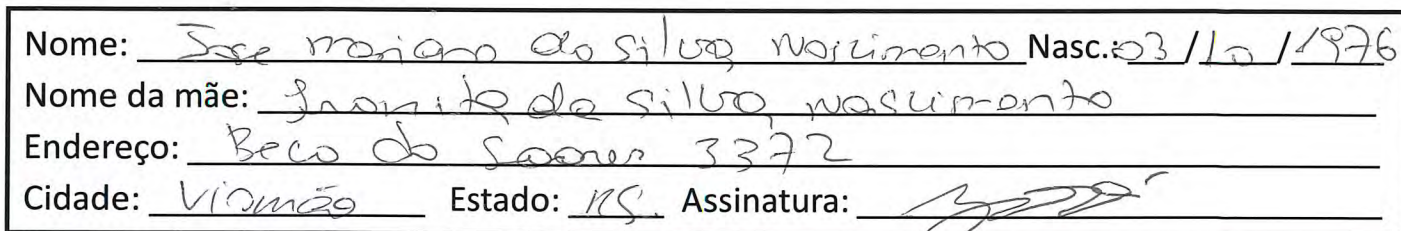 Nome: Jose mariano da silva Nascimento Nasc.: 03/10/1976
Nome da mãe: da silva nascimento
Endereço: Beco do Soares 3372
Cidade: Viamão Estado: RS. Assinatura: